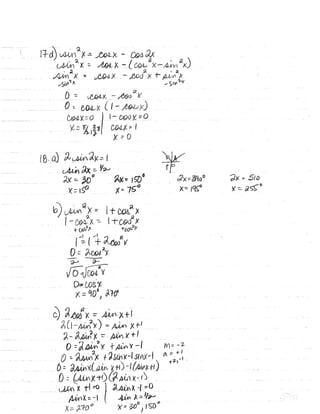 17.d) sin²x = cosx - cos2x
sin²x = cosx - (cos²x - sin²x)
sin²x = cosx - cos²x + sin²x
-sin²x -sin²x
0 = cosx - cos²x
0 = cosx (1 - cosx)
cosx=0 | 1 - cosx = 0
cosx = 1
x = 0
18. a) 2 sin2x = 1
sin 2x = 1/2
2x = 30° 2x = 150° 2x = 390° 2x = 510
x = 15° x = 75° x = 195° x = 255°
b) sin²x = 1 + cos²x
1 - cos²x = 1 + cos²x
+cos²x +cos²x
1 = 1 + 2cos²x
-1 -1
0 = 2cos²x
2 2
√0 = √cos²x
0 = cosx
x = 90°, 270°
c) 2cos²x = sinx + 1
2(1 - sin²x) = sinx + 1
2 - 2sin²x = sinx + 1
0 = 2sin²x + sinx - 1 m = -2
0 = 2sin²x + 2sinx - 1sinx - 1 a = +1
0 = 2sinx(sinx + 1) - 1(sinx + 1) +2, -1
0 = (sinx + 1)(2sinx - 1)
sinx + 1 = 0 | 2sinx - 1 = 0
sinx = -1 | sinx = 1/2
x = 270° x = 30°, 150°